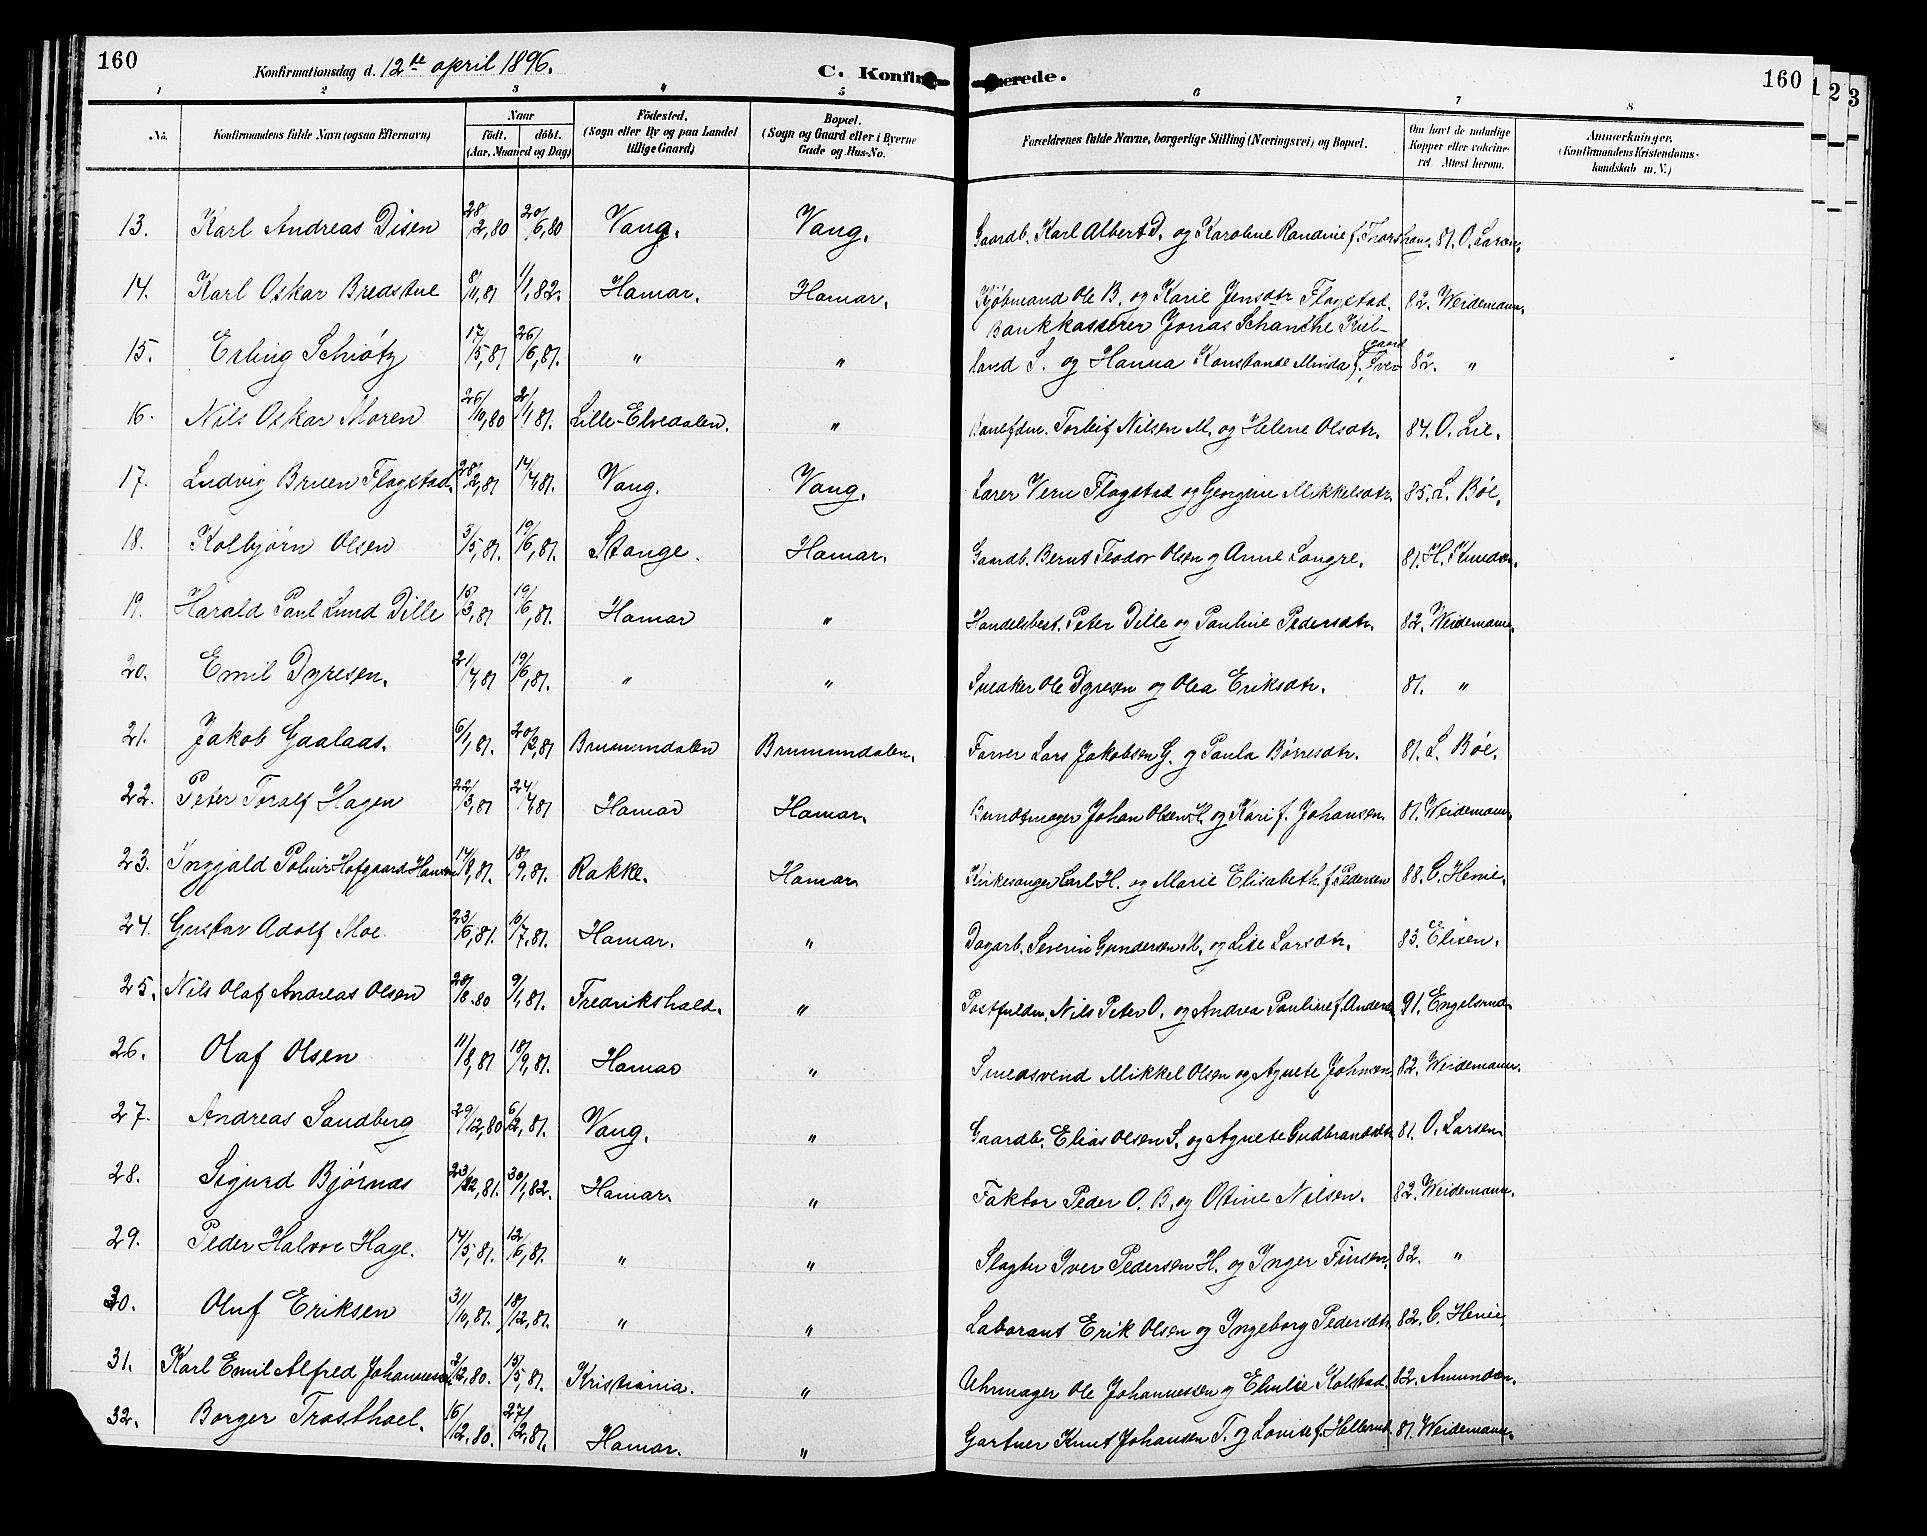 160
Konfirmationsdag d. 12te april 1896.
C. Konfirmerede.
160
1 2 3 4 5 6 7 8
No.
Konfirmandens fulde Navn (ogsaa Efternavn)
Naar
födt. döbt.
(Aar, Maaned og Dag)
Födested.
(Sogn eller By og paa Landet
tillige Gaard)
Bopæl.
(Sogn og Gaard eller i Byerne
Gade og Hus-No.
Forældrenes fulde Navne, borgerlige Stilling (Næringsvei) og Bopæl.
Om havt de naturlige
Kopper eller vakcine-
ret Attest herom.
Anmærkninger,
(Konfirmandens Kristendoms-
kundskab m. V.)
1
2
3
13. Karl Andreas Disen 28/2,80 20/6,80 Vang. Vang. Gaardb. Karl Albert D. og Karoline Randine f. Thorshaug. 81. O. Larsen
14. Karl Oskar Bredstue 8/11,81 1/1,82. Hamar. Hamar. Kjöbmand Ole B. og Karie Jensdtr Flagstad. 82. Weidemann.
Bankkasserer Jonas Schanche Kiel-
15. Erling Schiøtz 17/5,81 26/6,81. " " land S. og Hanna Konstanse Minda f. Tvergaard 82. "
16. Nils Oskar Moren 26/10,80 2/1,81. Lille-Elvedalen. " Banefdm. Torleif Nilsen M. og Helene Olsdtr. 84. O. Lie.
17. Ludvig Bruen Flagstad. 28/2,81 14/4,81. Vang. Vang. Lærer Vern Flagstad og Georgine Mikkelsdtr. 85. L. Bøe.
18. Kolbjørn Olsen 3/5,81. 19/6,81. Stange. Hamar. Gaardb. Bernt Teodor Olsen og Anne Longre. 81. H. Knudsen.
19. Harald Paul Lund Dille 15/3,81 19/6,81. Hamar " Handelsbest. Peter Dille og Pauline Pedersdtr. 82. Weidemann.
20. Emil Dyresen. 21/4,81 19/6,81. " " Snedker Ole Dyresen og Olea Eriksdtr. 81. "
21. Jakob Gaalaas. 6/1,81. 20/2,81 Brumundalen Brumundalen. Farver Lars Jakobsen G. og Paula Børresdtr. 81. L. Bøe.
22. Peter Toralf Hagen 22/3,81 24/4,81 Hamar Hamar. Bundtmager Johan Olsen H. og Kari f. Johansen. 81. Weidemann.
23. Ingjald Hofgaard Hansen 14/8,81. 18/9,81. Rakke. Hamar Kirkesanger Carl H. og Marie Elisabeth f. Pedersen 88. C. Henie.
24. Gustav Adolf Moe 23/6,81. 16/7,81. Hamar. " Dagarb. Severin Gundersen M. og Lise Larsdtr. 83. Elisen.
25. Nils Olaf Andreas Olsen 28/8.80 9/1,81. Fredrikshald. " Postfuldm. Nils Peter O. og Andrea Pauline f. Andersen 91. Engelsrud.
26. Olaf Olsen 11/8,81 18/9,81. Hamar " Smedsvend Mikkel Olsen og Agnete Johnsen. 82. Weidemann.
27. Andreas Sandberg 29/12,80 6/2,81. Vang. " Gaardb. Elias Olsen S. og Agnete Gudbrandsdtr. 81. O. Larsen
28. Sigurd Bjørnæs 23/12,81. 30/1,82. Hamar. " Faktor Peder O. B. og Otine Nilsen. 82. Weidemann.
29. Peder Halvor Hage. 14/5,81. 12/6,81. " " Slagter Iver Pedersen H. og Inger Finsen. 82. "
30. Oluf Eriksen 31/10,81. 18/12,81. " " Laborant Erik Olsen og Ingeborg Pedersdtr. 82. C. Henie.
31. Karl Emil Alfred Johannessen 2/12,80. 15/5,81. Kristiania. " Uhrmager Ole Johannessen og Emilie Kolstad. 82. Amundsen.
32. Borger Trosthoel. 16/12,80. 27/2,81. Hamar. " Gartner Knut Johansen T. og Lovise f. Hellerud. 81. Weidemann.